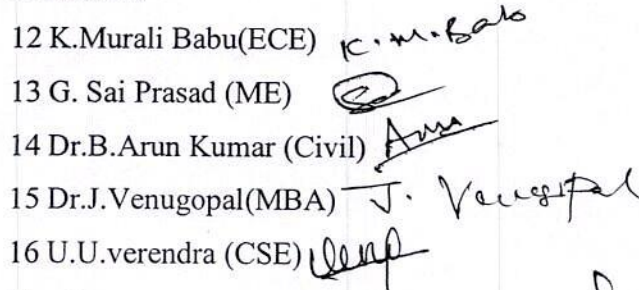 12 K.Murali Babu(ECE) K.M.Babu
13 G. Sai Prasad (ME)
14 Dr.B.Arun Kumar (Civil) Arun
15 Dr.J.Venugopal(MBA) J. Venugopal
16 U.U.verendra (CSE)